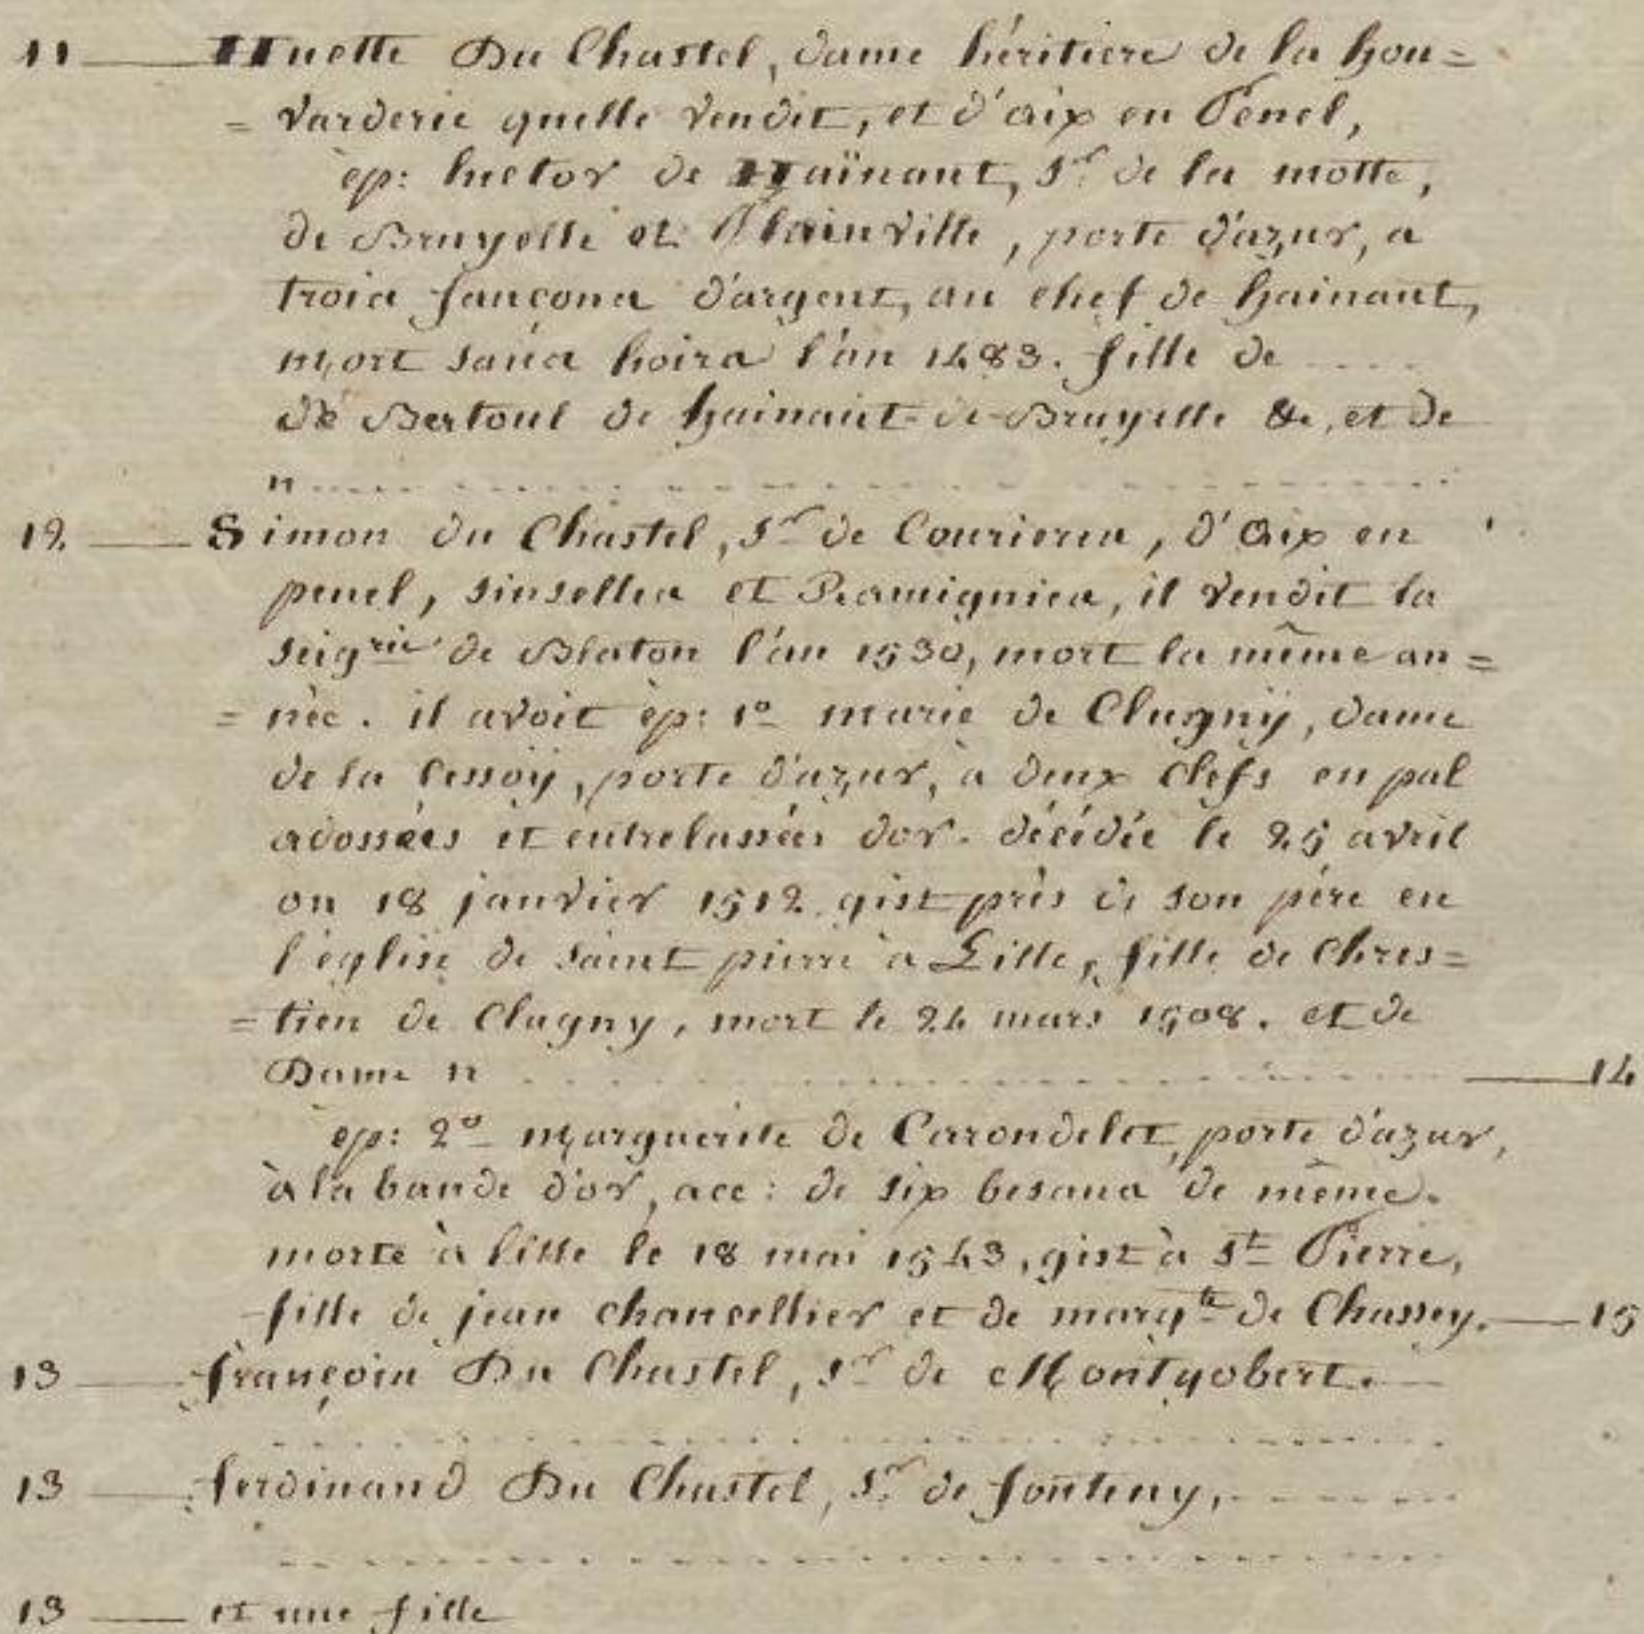 11 — Huette Du Chastel, dame héritiere de la hou=
= varderie quelle vendit, et d'aix en Penel,
ep: hector de Haïnaut, Sr de la motte,
de Bruyelle et Plainville, porte d'azur, a
trois faucons d'argent, au chef de hainaut,
mort sans hoirs l'an 1483. fille de ....
de Bertoul de hainaut de Bruyelle &c, et de
n ...............
12 — Simon du Chastel, Sr de Courieres, d'Aix en
penel, sinselles et Ramignies, il vendit la
seigrie de Blaton l'an 1530, mort la même an=
= née. il avoit ép: 1º marie de Clugnÿ, dame
de la Cessoÿ, porte d'azur, a deux clefs en pal
adossées et entrelassées d'or. décédée le 25 avril
ou 18 janvier 1512 gist près de son père en
l'église de saint pierre à Lille, fille de Chres=
= tien de Clugny, mort le 24 mars 1508. et de
Dame n ............... — 14
ep: 2º Marguerite de Carondelet, porte d'azur,
à la bande d'or, acc: de six besans de même.
morte à lille le 18 mai 1543, gist à St Pierre,
fille de jean chancellier et de margte de Chassey. — 15
13 — françois Du Chastel, Sr de Montgobert.
...............
13 — ferdinand Du Chastel, Sr de fonteny, .......
...............
13 — et une fille